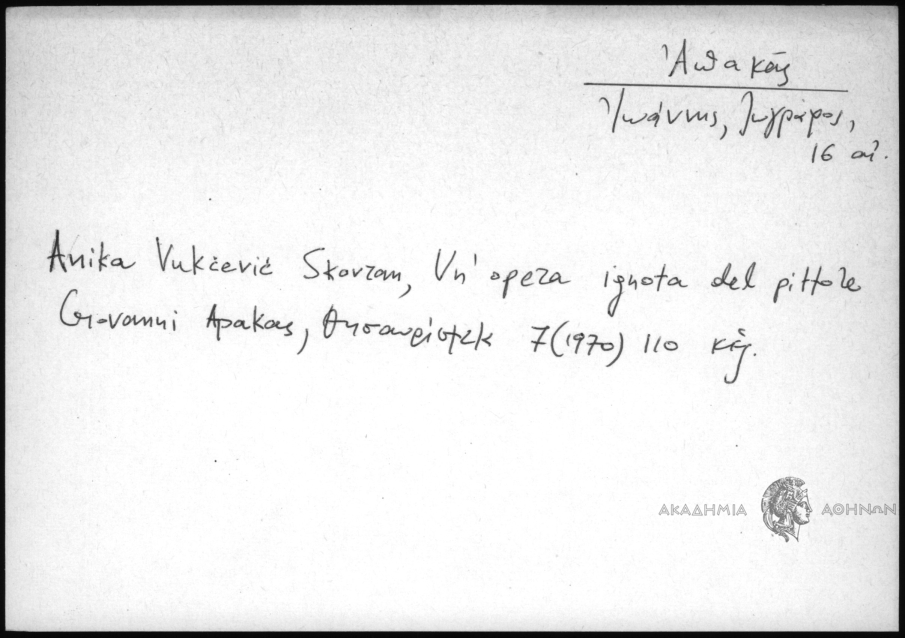 Ἀπακᾶς
Ἰωάννης, ζωγράφος,
16 αἰ.
Anika Vukčević Skovran, Un' opera ignota del pittore
Giovanni Apakas, Θησαυρίσματα 7(1970) 110 κἑξ.
ΑΚΑΔΗΜΙΑ ΑΘΗΝΩΝ